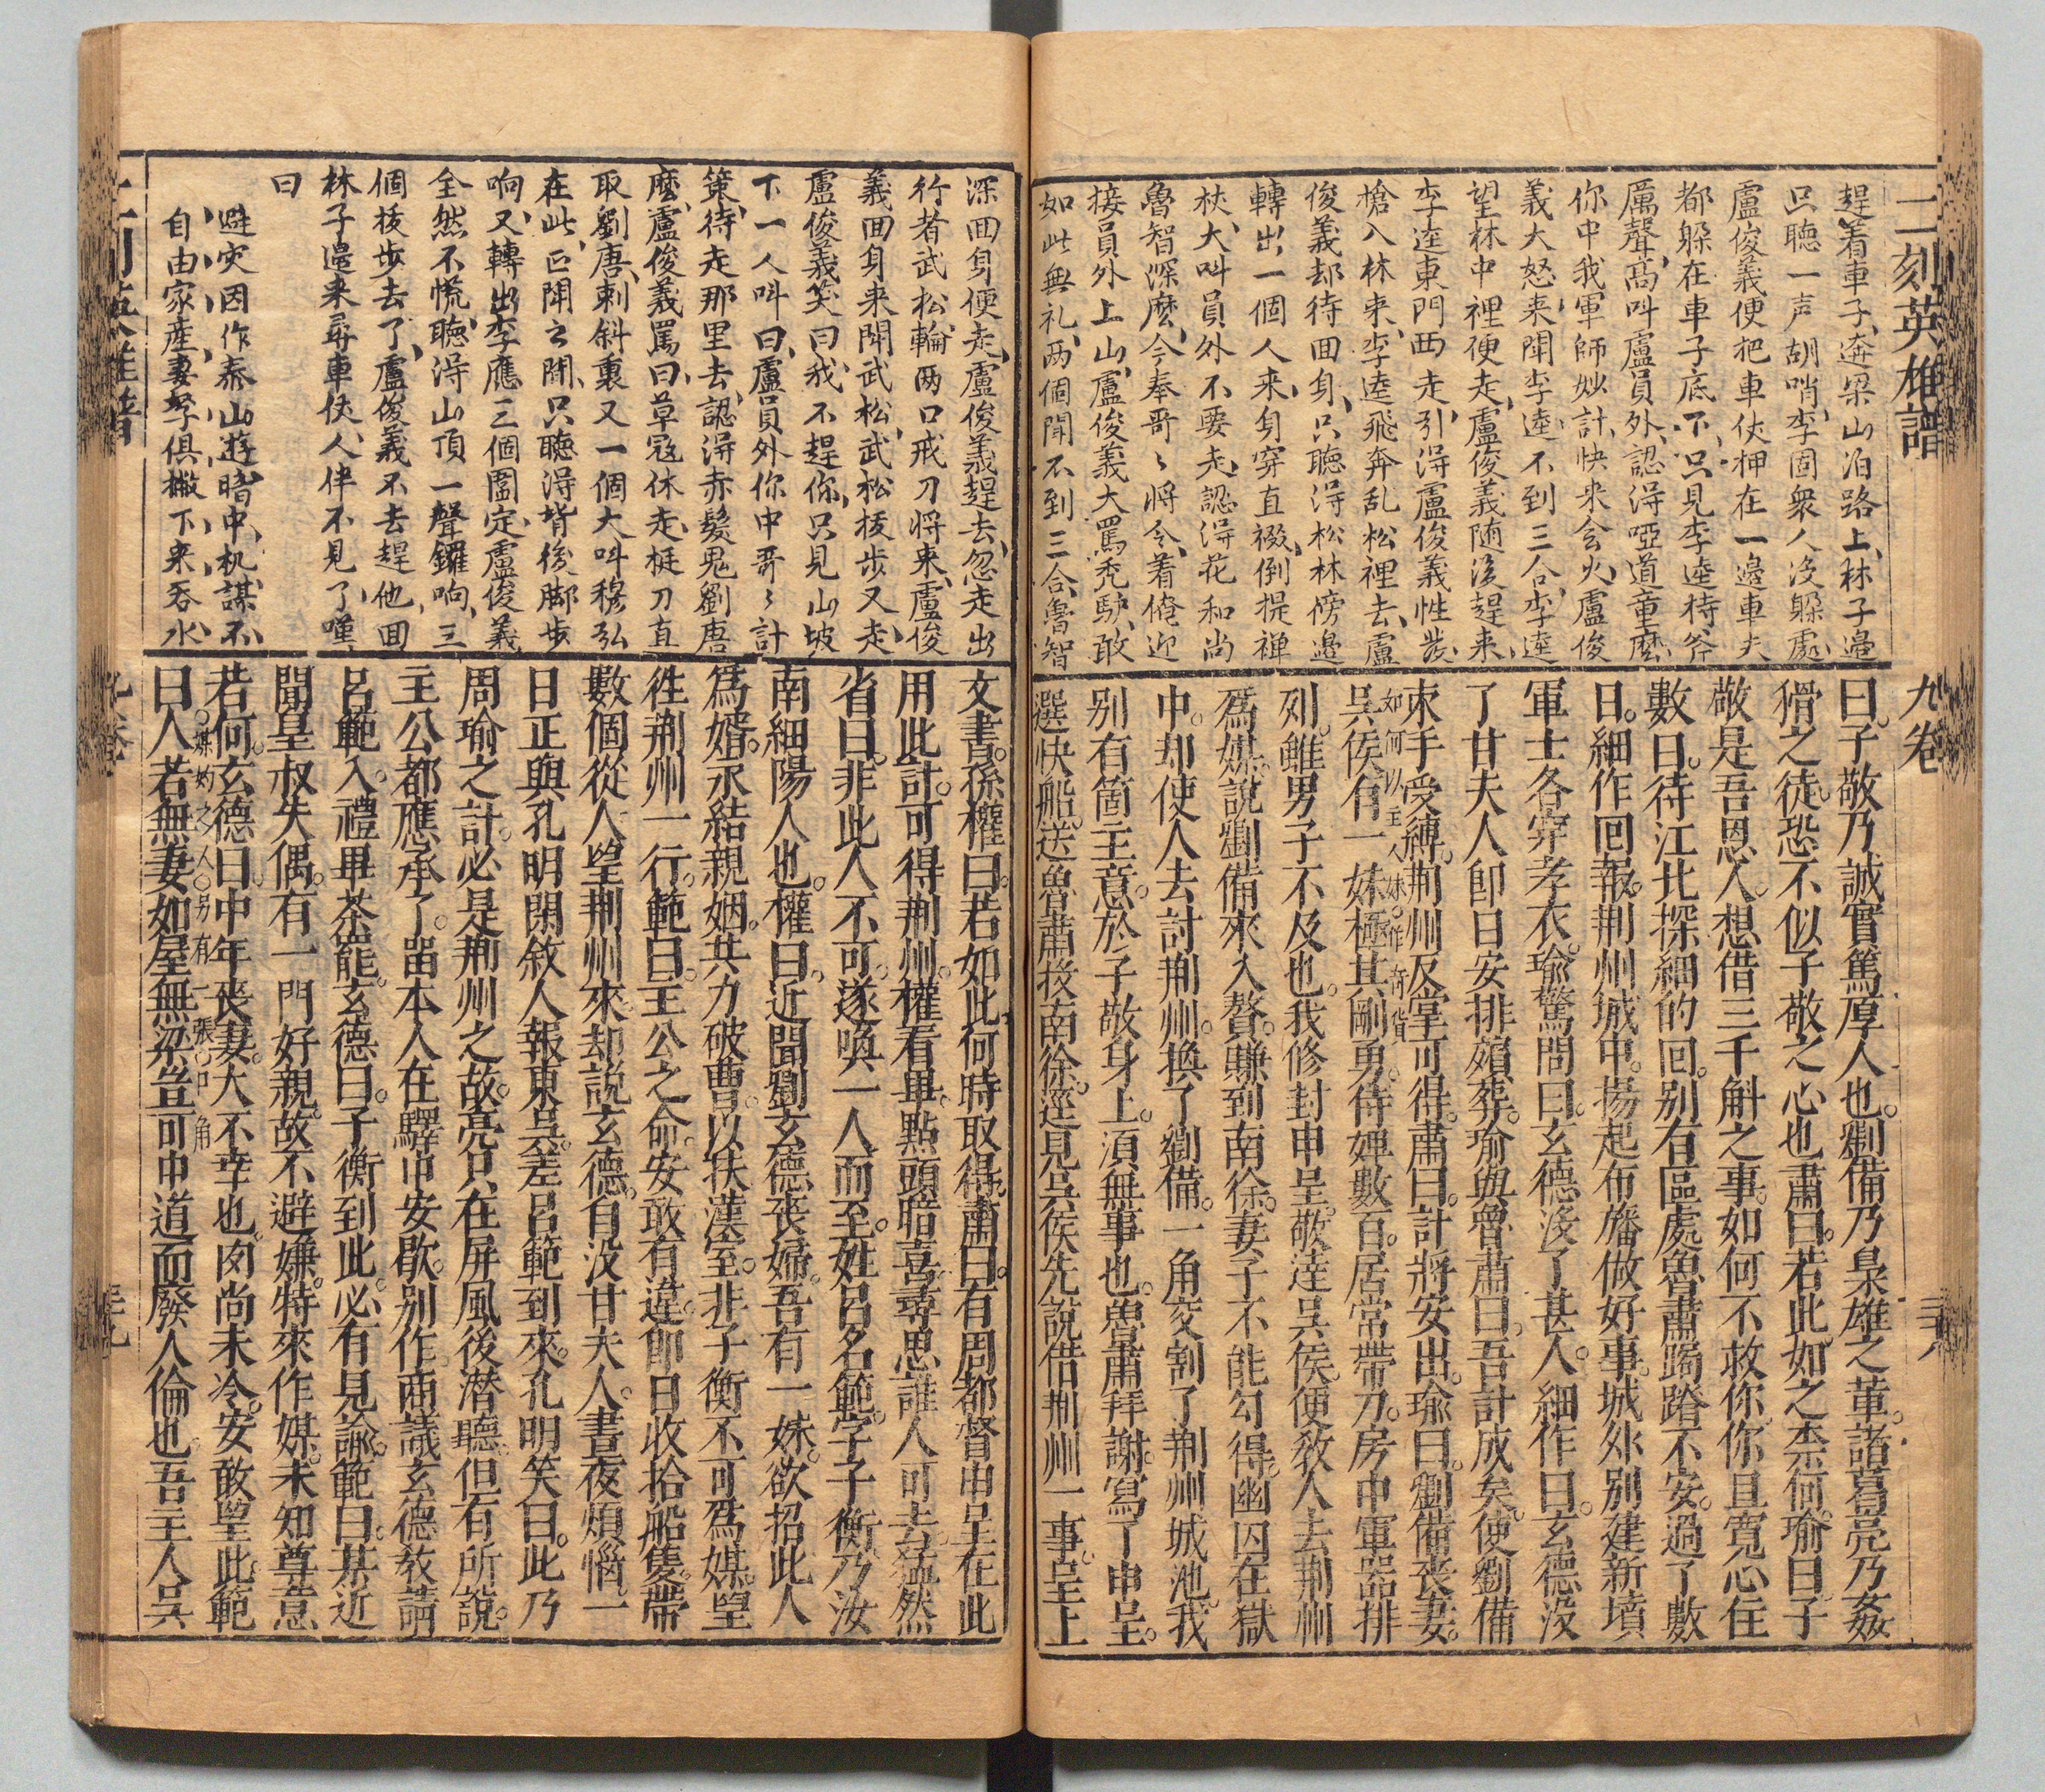 二刻英雄譜
九卷
三十八
趕着車子、奔梁山泊路上、林子邊
只聽一声胡哨、李固衆人沒躱處、
盧俊義便把車仗押在一邊、車夫
都躱在車子底下、只見李逵持斧
厲聲高叫盧員外、認淂啞道童麼、
你中我軍師妙計、快來会火、盧俊
義大怒、來閗李逵、不到三合、李逵
望林中裡便走、盧俊義随後趕來、
李逵東門西走、引淂盧俊義性發、
搶入林來、李逵飛奔乱松裡去、盧
俊義却待囬身、只聽淂松林傍邉
轉出一個人來、身穿直裰、倒提禅
杖、大叫員外不要走、認淂花和尚
魯智深麽、今奉哥〻將令、着俺迎
接員外上山、盧俊義大罵秃馿、敢
如此無礼、两個閗不到三合、魯智
曰。子敬乃誠實篤厚人也。劉備乃梟雄之輩。諸葛亮乃姦
猾之徒。恐不似子敬之心也。肅曰。若此。如之柰何。瑜曰。子
敬是吾恩人。想借三千斛之事。如何不救你。你且寬心住
數日。待江北探細的回。别有區處。魯肅跼蹐不安。過了數
日。細作囘報。荆州城中。揚起布旛做好事。城外别建新墳
軍士各穿孝衣。瑜驚問曰。玄德沒了甚人。細作曰。玄德沒
了甘夫人。卽日安排殯葬。瑜與魯肅曰。吾計成矣。使劉備
束手受縛。荆州反掌可得。肅曰。計將安出。瑜曰。劉備喪妻。
如何以主人妹。作奇貨
吳侯有一妹。極其剛勇。侍婢數百。居常帶刀。房中軍器排
列。雖男子不及也。我修封申呈。敬達吳侯。便敎人去荆州
爲媒。說劉備來入贅。賺到南徐。妻子不能勾得。幽囚在獄
中。却使人去討荆州。換了劉備。一角交割了荆州城池。我
别有箇主意。於子敬身上。須無事也。魯肅拜謝。寫了申呈。
選快船。送魯肅投南徐。逕見吳侯。先說借荆州一事。呈上
深囬身便走、盧俊義趕去、忽走出
行者武松、輪两口戒刀將來、盧俊
義囬身來閗武松、武松抜步又走、
盧俊義笑曰、我不趕你、只見山坡
下一人叫曰、盧員外你中哥〻計
策、待走那里去、認淂赤髮鬼劉唐
麽、盧俊義罵曰、草寇休走、挺刀直
取劉唐、刺斜裏又一個大叫穆弘
在此、正閗之間、只聽淂背後脚步
响、又轉出李應、三個圍定、盧俊義
全然不慌、聽淂山頂一聲鑼响、三
個抜步去了、盧俊義不去趕他、囬
林子邉來尋車仗、人伴不見了、嘆
曰
避灾因作泰山遊、暗中机謀不
自由、家産妻孥俱撇下、來吞水
文書。孫權曰。若如此何時取得。肅曰。有周都督申呈在此
用此計。可得荆州。權看畢。點頭暗喜。尋思誰人可去。猛然
省曰。非此人不可。遂喚一人而至。姓呂名範。字子衡。乃汝
南細陽人也。權曰。近聞劉玄德喪婦。吾有一妹。欲招此人
爲婿。永結親姻。共力破曹。以扶漢室。非子衡不可爲媒。望
徃荆州一行。範曰。主公之命。安敢有違。卽日收拾船隻。帶
數個從人望荆州來。却說玄德。自沒甘夫人。晝夜煩惱。一
日正與孔明閒敘。人報東吳差呂範到來。孔明笑曰。此乃
周瑜之計。必是荆州之故。亮只在屏風後潜聽。但有所說。
主公都應承了。畱本人在驛中安歇。别作商議。玄德敎請
呂範入。禮畢茶罷。玄德曰。子衡到此。必有見諭。範曰。某近
聞皇叔失偶。有一門好親。故不避嫌。特來作媒。未知尊意
若何。玄德曰。中年喪妻。大不幸也。肉尚未冷。安敢望此。範
媒妁之人。另有一張口角
曰。人若無妻。如屋無梁。豈可中道而廢人倫也。吾主人吳